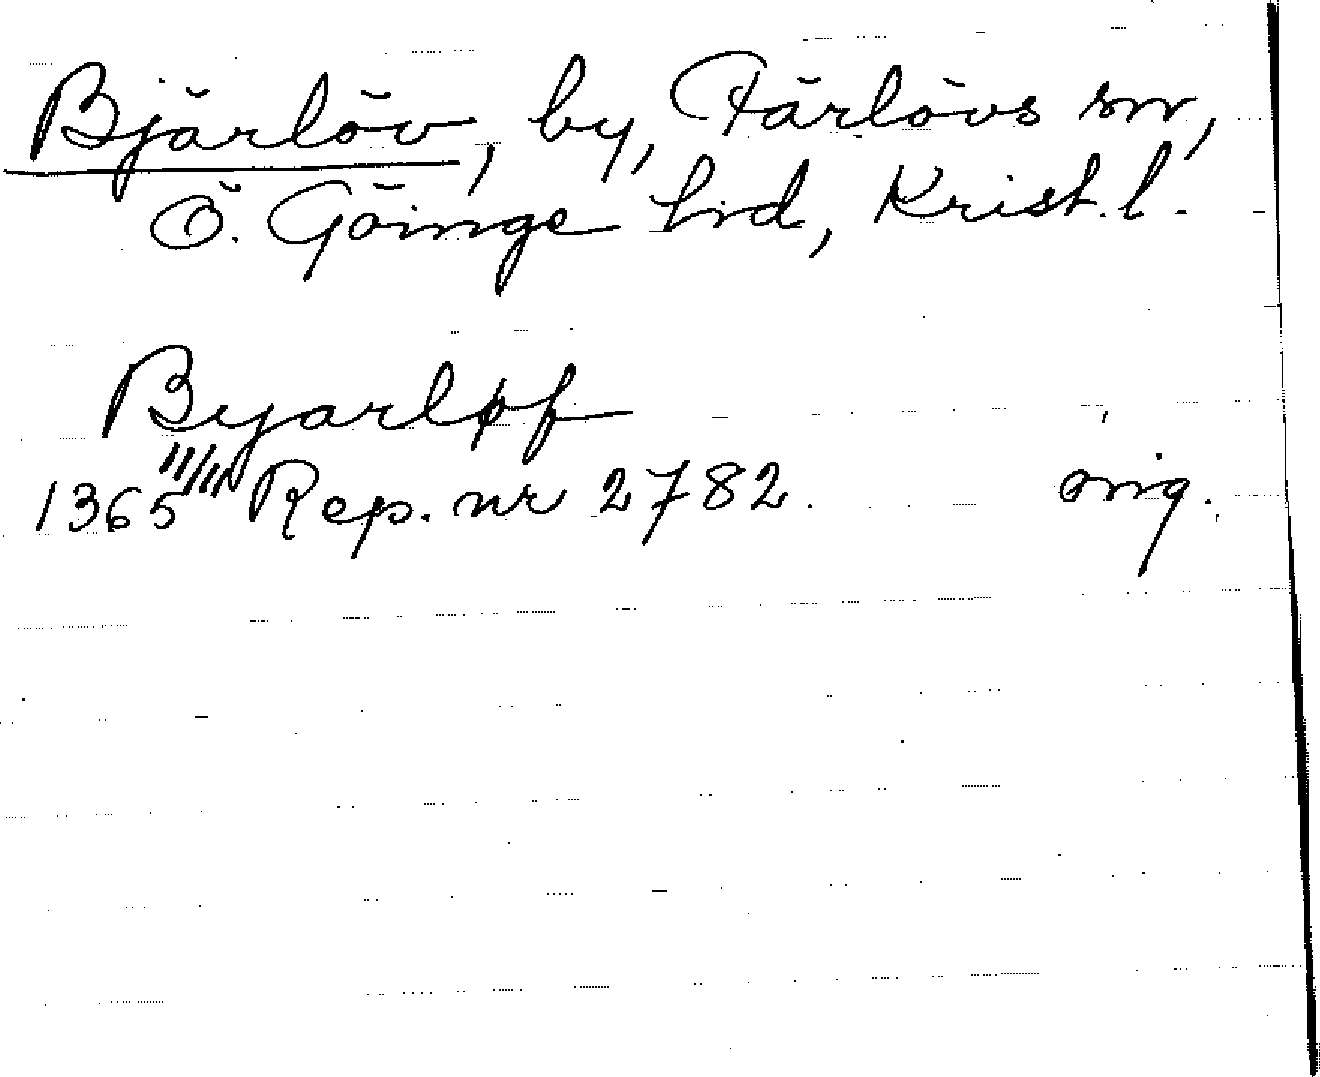 Bjärlöv, by, Färlövs sn,
Ö. Göinge hd, Krist. l.
Byarløf
1365 11/11 Rep. nr 2782. orig.